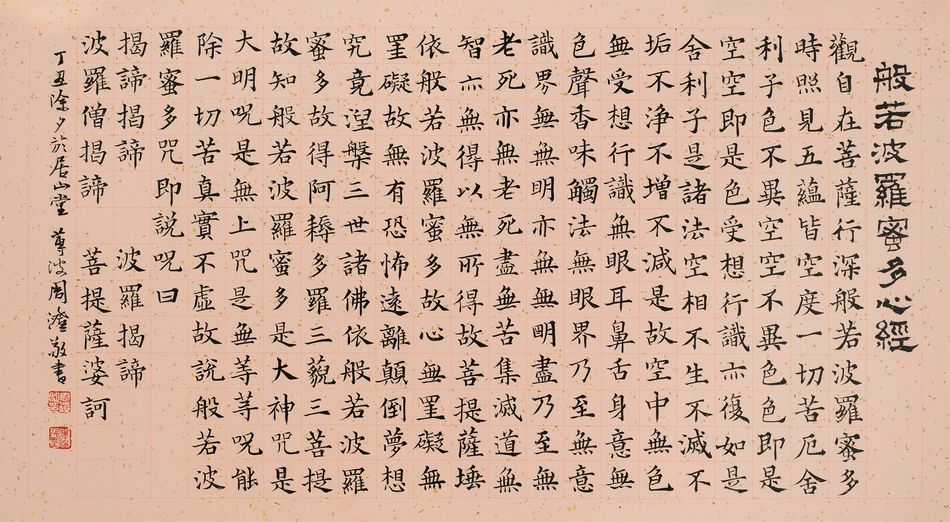 般若波羅蜜多心經
觀自在菩薩行深般若波羅蜜多
時照見五蘊皆空度一切苦厄舍
利子色不異空空不異色色即是
空空即是色受想行識亦復如是
舍利子是諸法空相不生不滅不
垢不淨不增不減是故空中無色
無受想行識無眼耳鼻舌身意無
色聲香味觸法無眼界乃至無意
識界無無明亦無無明盡乃至無
老死亦無老死盡無苦集滅道無
智亦無得以無所得故菩提薩埵
依般若波羅蜜多故心無罣礙無
罣礙故無有恐怖遠離顛倒夢想
究竟涅槃三世諸佛依般若波羅
蜜多故得阿耨多羅三藐三菩提
故知般若波羅蜜多是大神咒是
大明呪是無上咒是無等等呪能
除一切苦真實不虛故說般若波
羅蜜多咒即說呪曰
揭諦揭諦 波羅揭諦
波羅僧揭諦 菩提薩婆訶
丁丑除夕於居山堂 蓴波周澄敬書